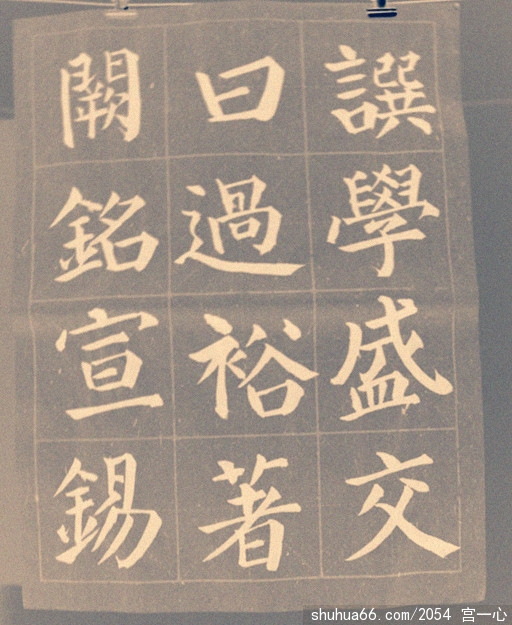 譔學盛交
曰過裕著
闕銘宣錫
shuhua66.com/2054 宫一心